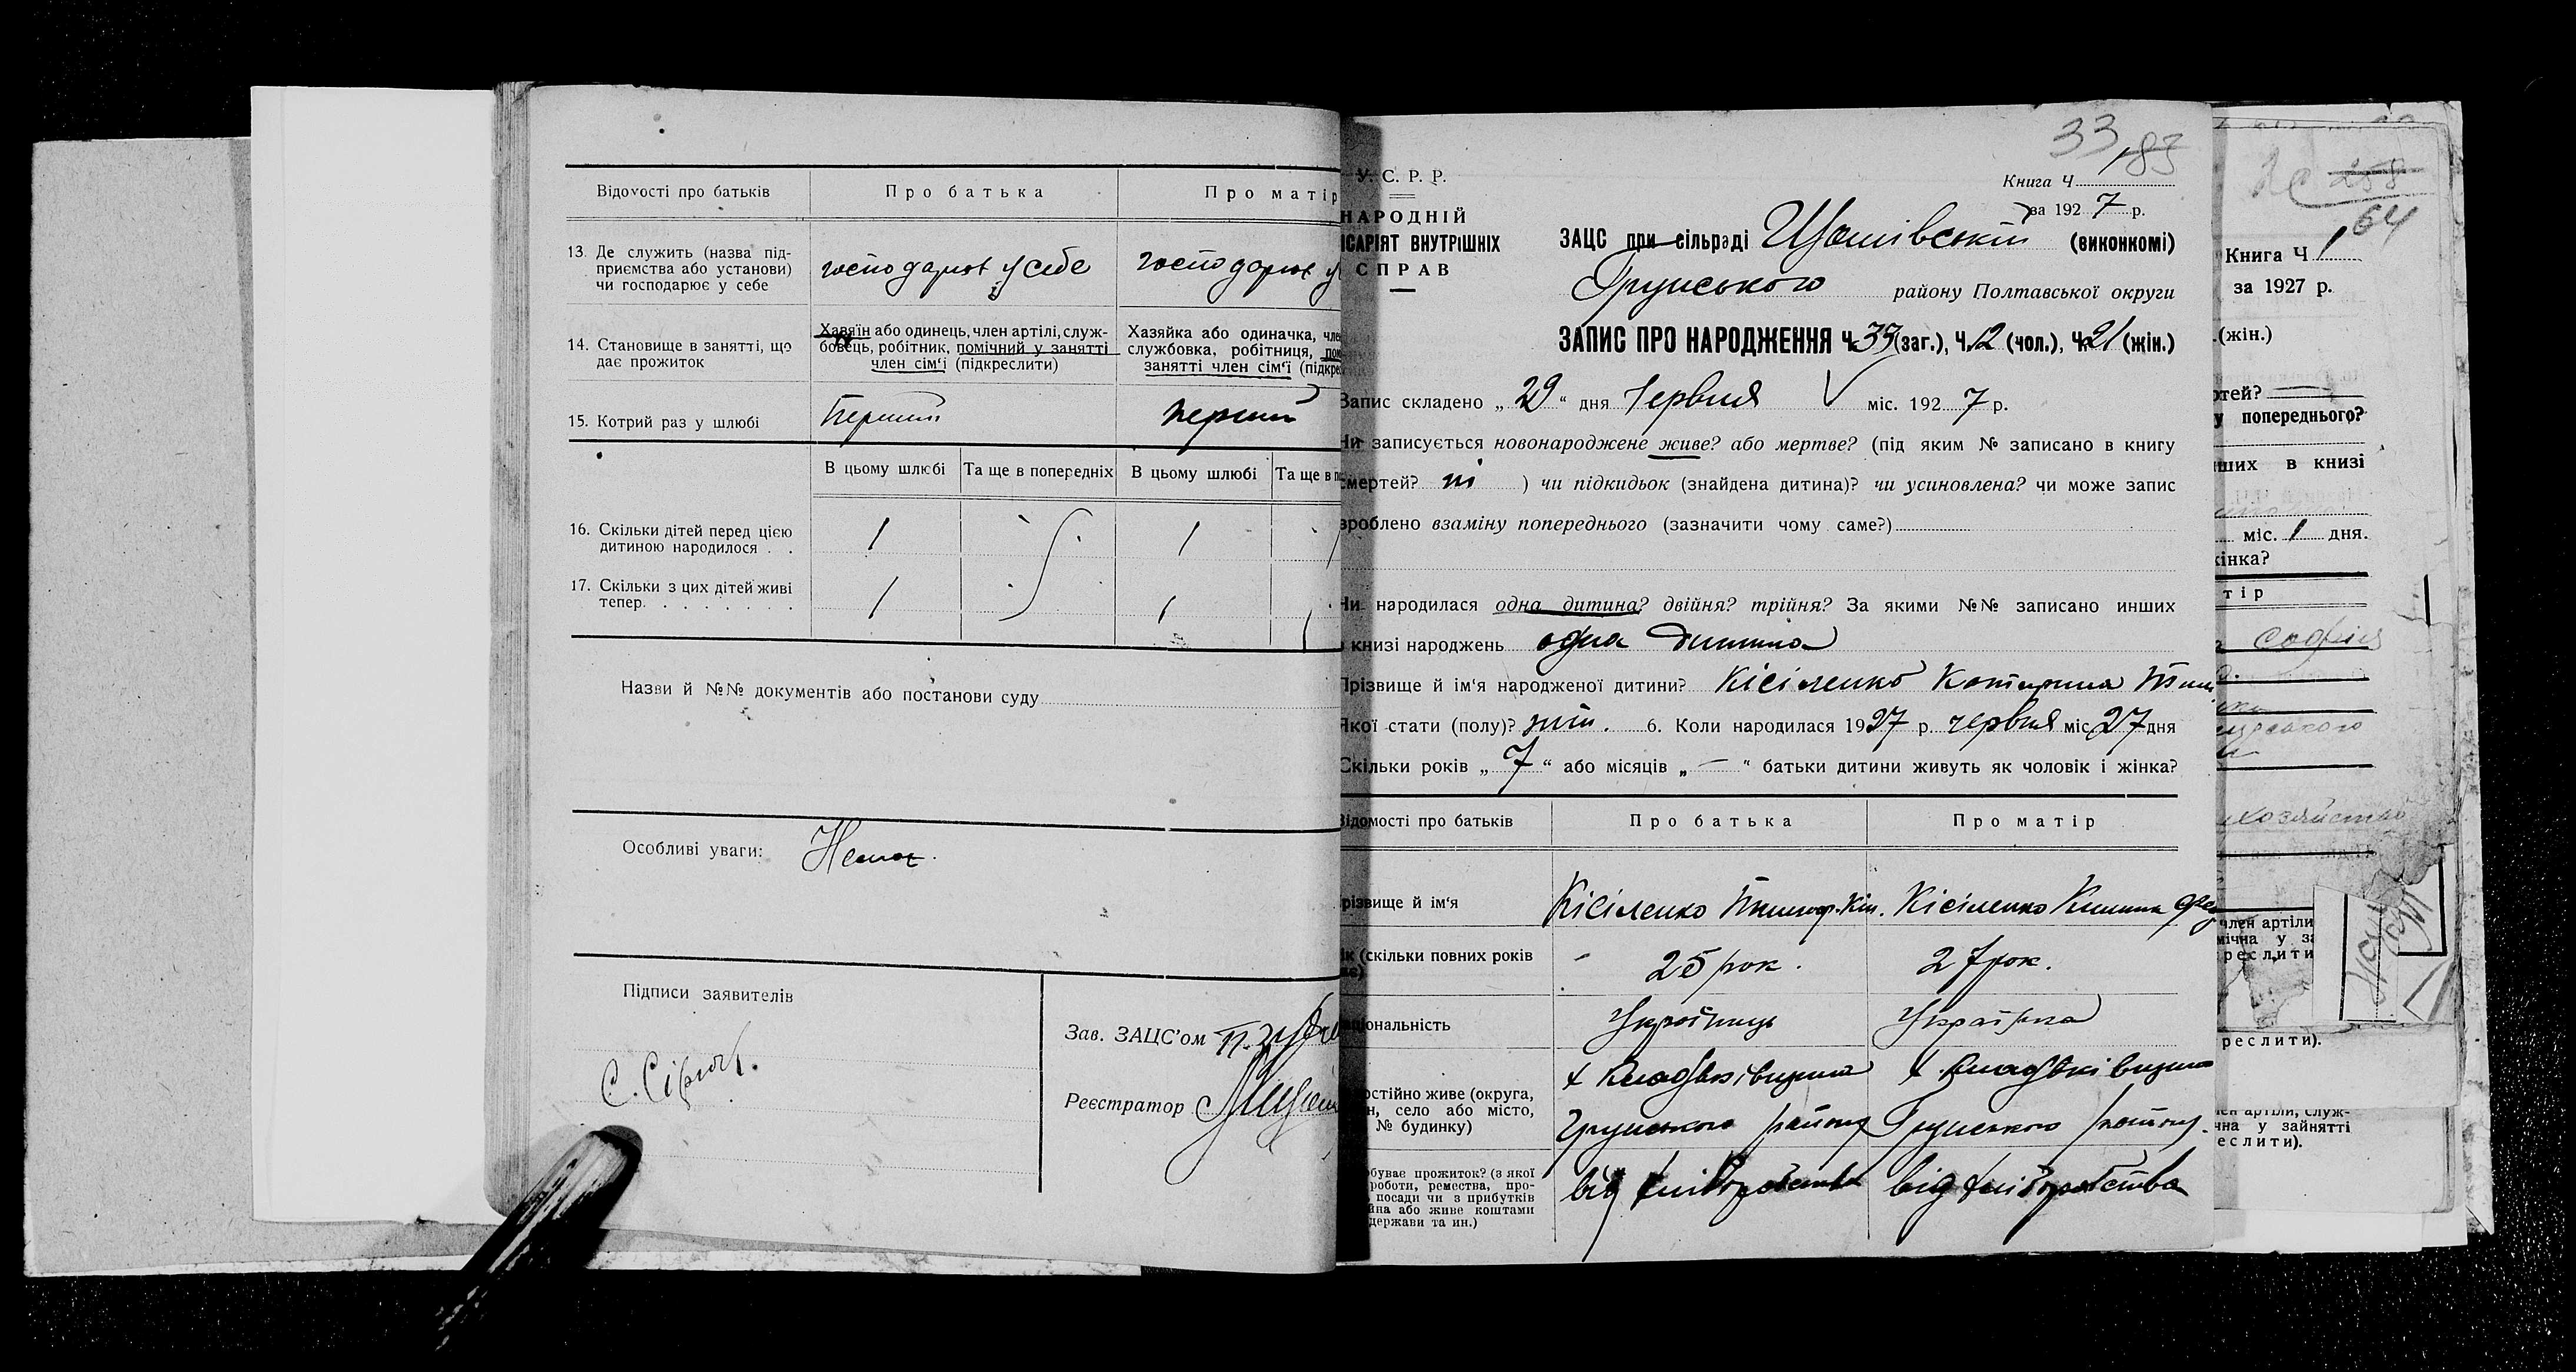 Відомості про батьків
Про батька
Про матір
13. Де служить (назва під-
приємства або установи)
чи господарює у себе
господарює у себе
господарює у
14. Становище в занятті, що
дає прожиток
Хазяїн або одинець, член артілі, служ-
бовець, робітник, помічний у занятті
член сім'ї (підкреслити)
Хазяйка або одиначка, чле
службовка, робітниця, пом
занятті член сім'ї (підкре
15. Котрий раз у шлюбі
Перший
перший
В цьому шлюбі
Та ще в попередніх
В цьому шлюбі
Та ще в по
16. Скільки дітей перед цією
дитиною народилося . .
1
1
17. Скільки з цих дітей живі
тепер. . . . . . . .
1
1
Назви й №№ документів або постанови суду
Особливі уваги:
Немає.
Підписи заявителів
Зав. ЗАЦС'ом
Реєстратор
33
183
У. С. Р. Р.
НАРОДНІЙ
ІСАРІЯТ ВНУТРІШНІХ
СПРАВ
Книга Ч
за 1927 р.
ЗАЦС при сільраді (виконкомі)
Грунського району Полтавської округи
ЗАПИС ПРО НАРОДЖЕННЯ Ч. 33 (заг.), Ч. 12 (чол.), Ч. 21 (жін.)
Запис складено „29“ дня червня міс. 1927 р.
Чи записується новонароджене живе? або мертве? (під яким № записано в книгу
смертей? ні ) чи підкидьок (знайдена дитина)? чи усиновлена? чи може запис
зроблено взаміну попереднього (зазначити чому саме?)
Чи народилася одна дитина? двійня? трійня? За якими №№ записано инших
книзі народжень одна дитина
Прізвище й ім'я народженої дитини? Кісіленко Катерина Тим
Якої стати (полу)? жін. 6. Коли народилася 1927 р. червня міс. 27 дня
Скільки років „7“ або місяців „—“ батьки дитини живуть як чоловік і жінка?
Відомості про батьків
Про батька
Про матір
різвище й ім'я
Кісіленко
Кісіленко
ік (скільки повних років
25 рок.
27 рок.
ціональність
Українець
Українка
остійно живе (округа,
н, село або місто,
№ будинку)
Грунського району
Грунського району.
обуває прожиток? (з якої
роботи, ремества, про-
посади чи з прибутків
їна або живе коштами
держави та ин.)
від хліборобства
від хліборобства
64
Книга Ч 1
за 1927 р.
(жін.)
ртей?
у попереднього?
ших в книзі
міс. 1 дня.
жінка?
тір
софія
член артіли
мічна у за
реслити
реслити).
лен артіли, служ-
чна у зайнятті
еслити).